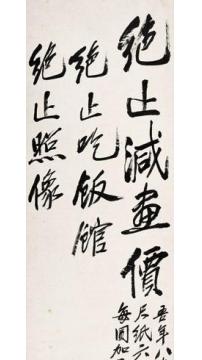 絶止減畫價
絶止吃飯館
絶止照像
吾年八
尺紙六
每圓加